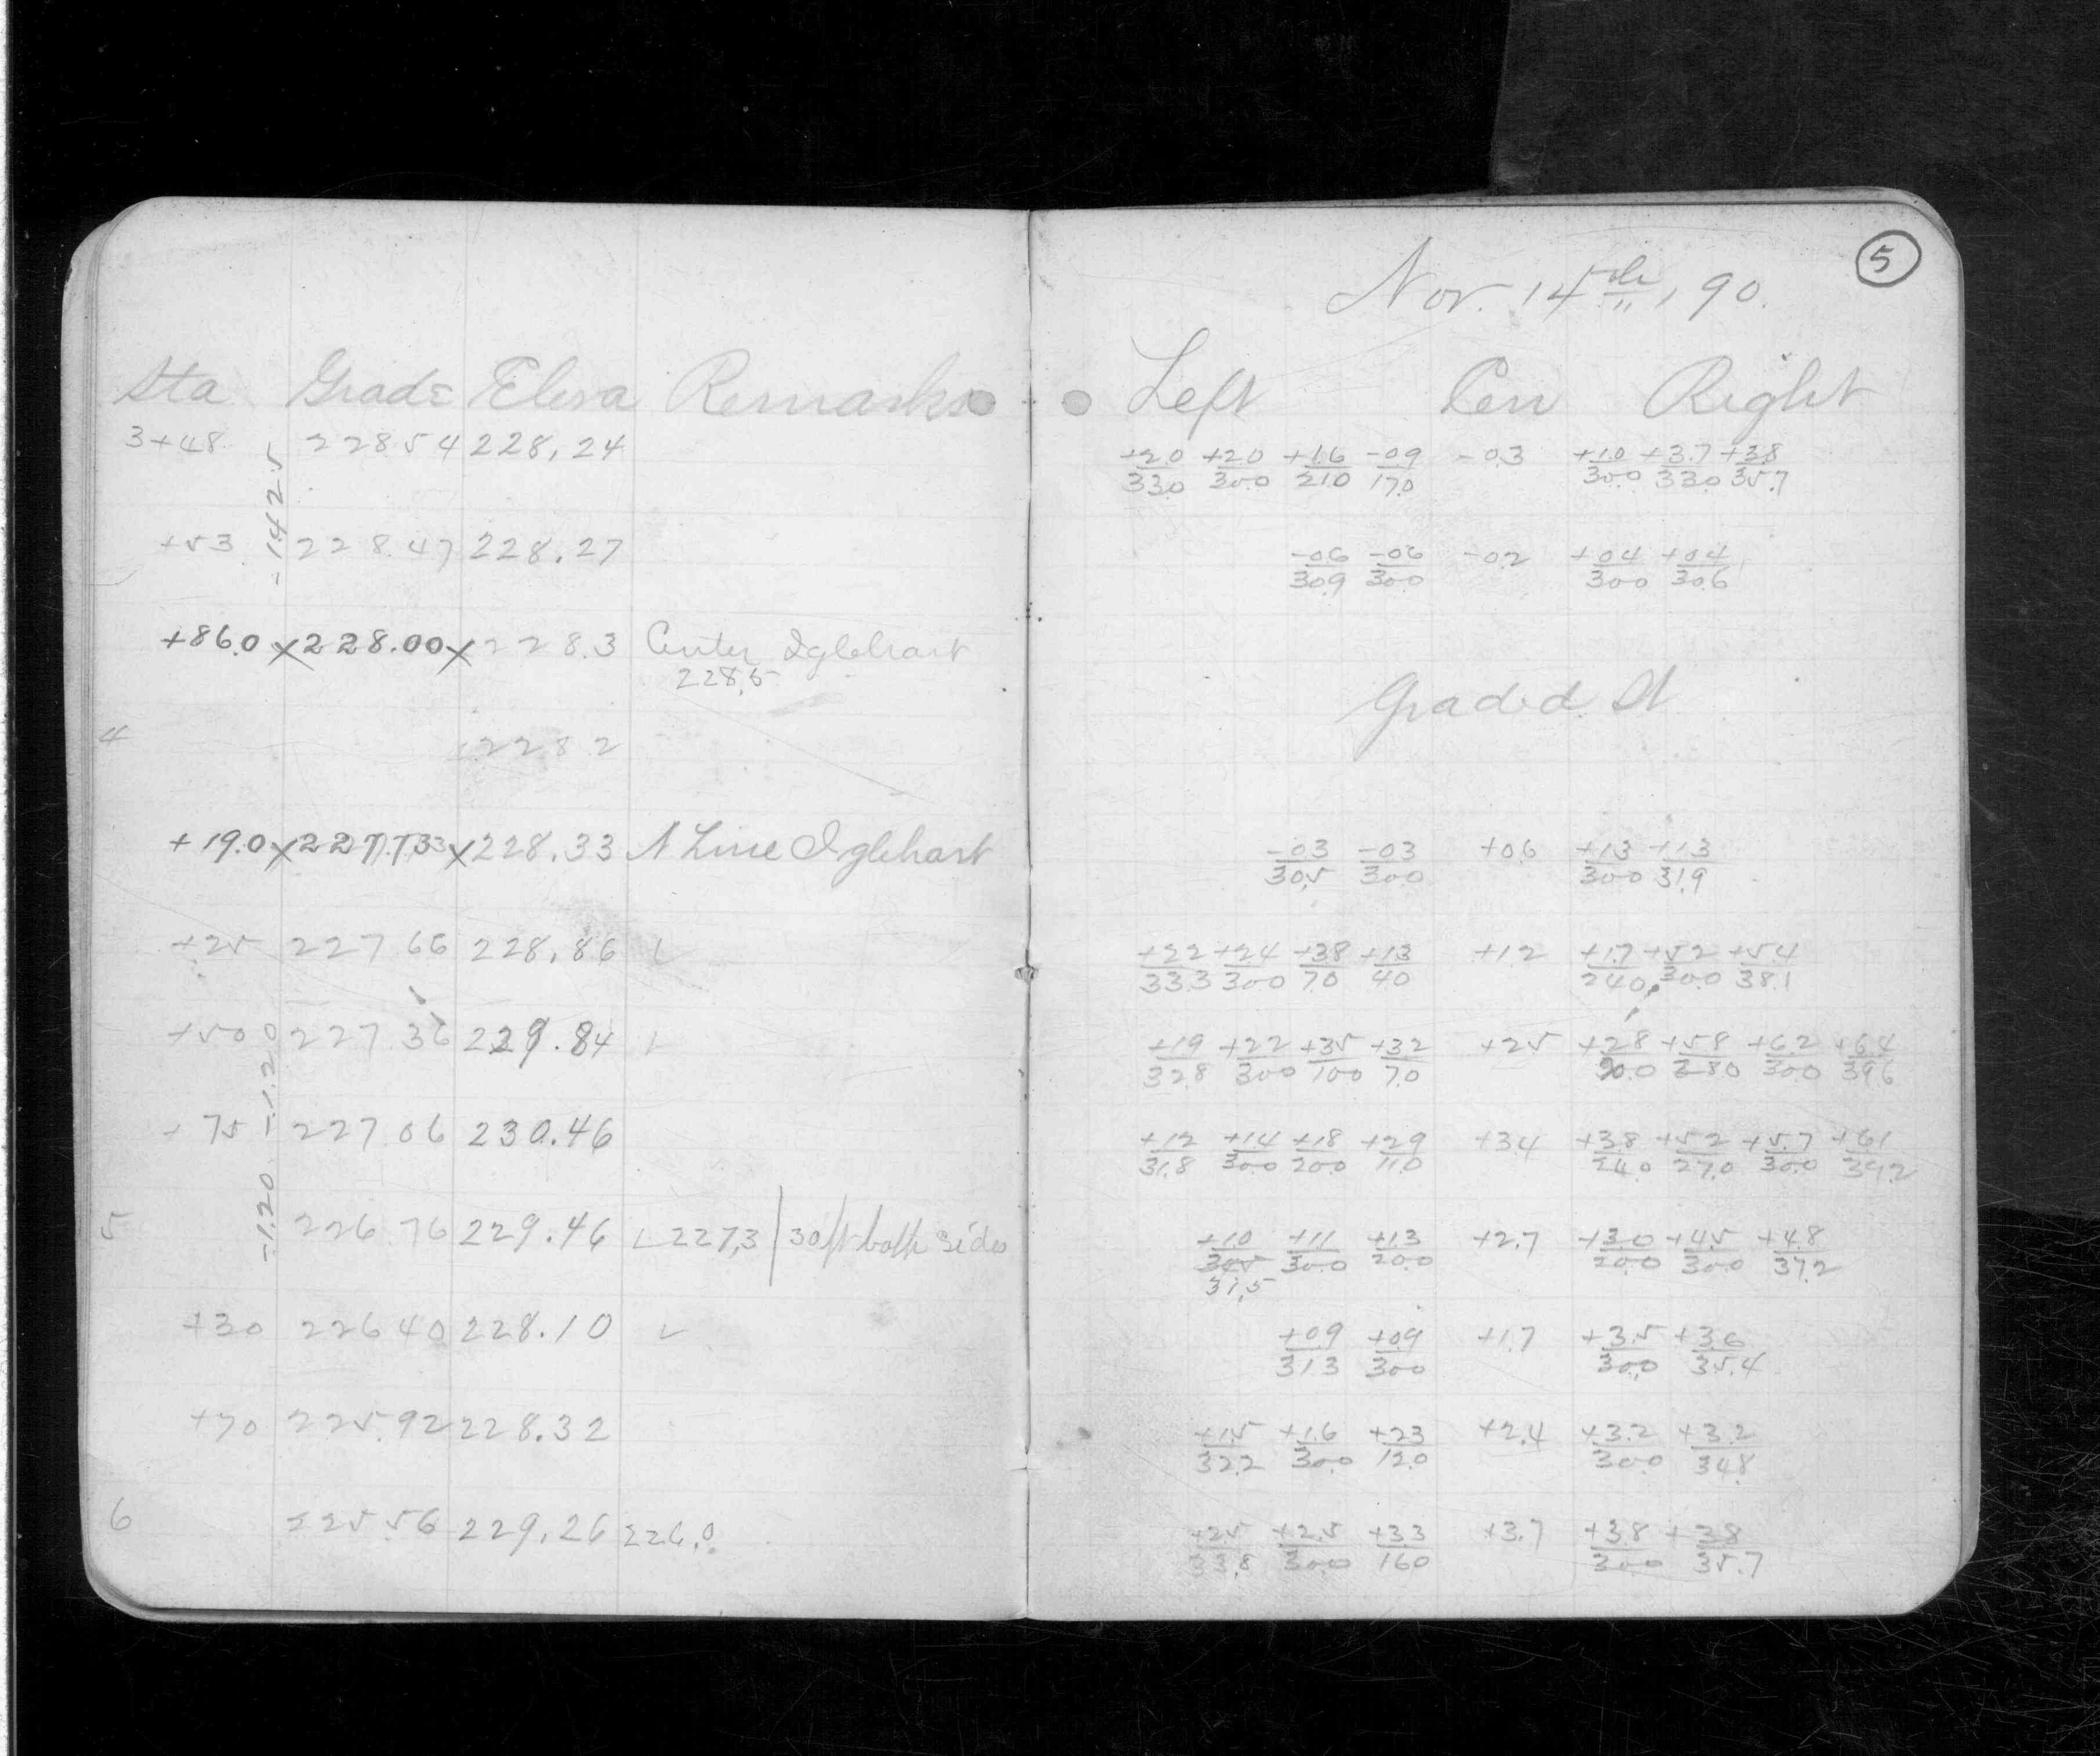 5
Nov. 14th, 90.
Sta Grade Eleva Remarks
Left Cen Right
3+48 228 54 228.24
+2.0/33.0 +2.0/30.0 +1.6/21.0 -0.9/17.0 -0.3 +1.0/30.0 +3.7/33.0 +3.8/35.7
-1.425
+53 228.47 228.27
-0.6/30.9 -0.6/30.0 -0.2 +0.4/30.0 +0.4/30.6
+86.0 x 228.00 x 228.3 Center Iglehart
228.5
Graded St
4 228 2
+19.0 x 227.733 x 228.33 N Line Iglehart
-0.3/30.5 -0.3/30.0 +0.6 +1.3/30.0 +1.3/31.9
+25 227 66 228.86 ✓
+2.2/33.3 +2.4/30.0 +3.8/7.0 +1.3/4.0 +1.2 +1.7/24.0 +5.2/30.0 +5.4/38.1
+50 227 36 229.84 ✓
+1.9/32.8 +2.2/30.0 +3.5/10.0 +3.2/7.0 +2.5 +5.8/28.0 +6.2/30.0 +6.4/39.6
-1.20
+75 227 06 230.46
+1.2/31.8 +1.4/30.0 +1.8/20.0 +2.9/11.0 +3.4 +3.8/24.0 +5.2/27.0 +5.7/30.0 +6.1/39.2
-1.20
5 226 76 229.46 ✓ 227.3 | 30 ft both sides
+1.0/31.5 +1.1/30.0 +1.3/20.0 +2.7 +3.0/20.0 +4.5/30.0 +4.8/37.2
+30 226 40 228.10 ✓
+0.9/31.3 +0.9/30.0 +1.7 +3.5/30.0 +3.6/35.4
+70 225.92 228.32
+1.5/32.2 +1.6/30.0 +2.3/12.0 +2.4 +3.2/30.0 +3.2/34.8
6 225 56 229.26 226.0
+2.5/33.8 +2.5/30.0 +3.3/16.0 +3.7 +3.8/30.0 +3.8/35.7